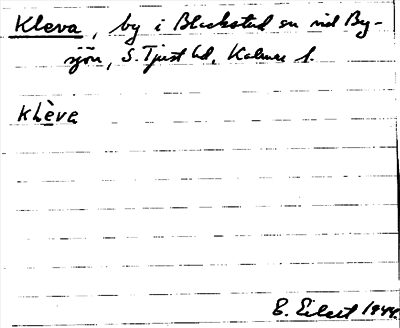 Kleva, by i Blackstad sn vid By-
sjön, S. Tjust hd, Kalmar l.
klèva
E. Eilert 1944.